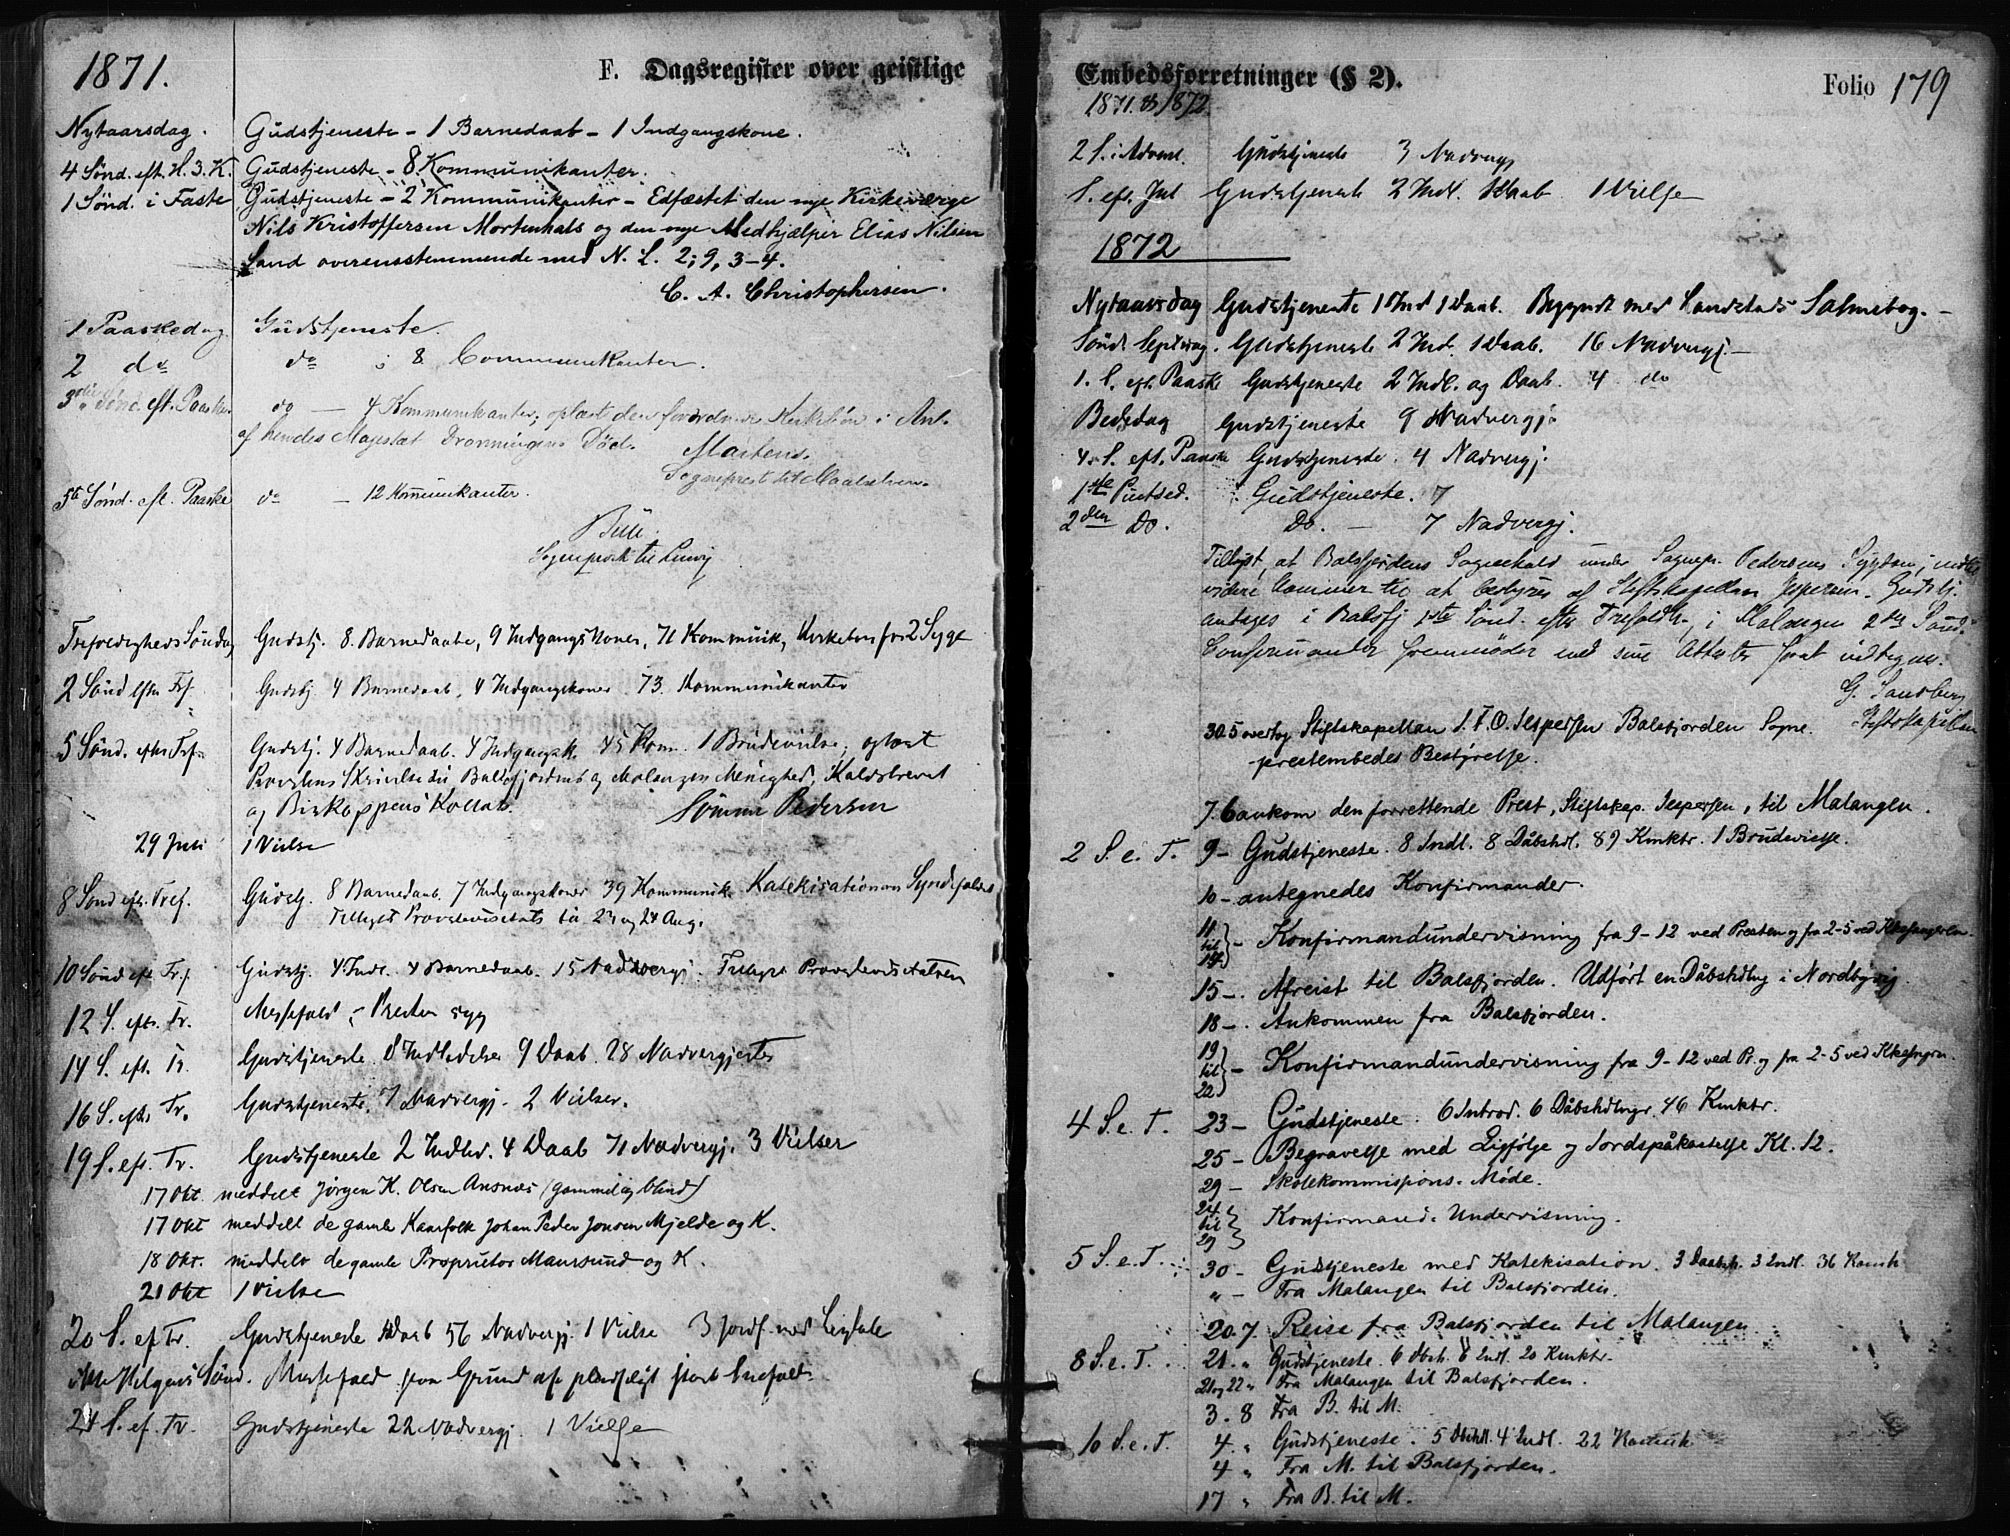 1871.
F. Dagsregister over geistlige
Nytaarsdag. Gudstjeneste - 1 Barnedaab - 1 Indgangskone.
4 Sønd. eft. H. 3. K. Gudstjeneste - 8 Kommunikanter.
1 Sønd. i Faste Gudstjeneste - 2 Kommunikanter - Edfæstet den nye Kirkeværge
Nils Kristoffersen Mortenhals og den nye Medhjælper Elias Nilsen
Sand overensstemmende med N. L. 2; 9, 3-4.
C. A. Christophersen.
1 Paaskedag Gudstjeneste.
2 do do ; 8 Communikanter.
3die Sønd. eft. Paaske. do — 4 Kommunikanter; oplæst den forordnede Kirkebøn i Anl.
af hendes Majestæt Dronningens Død.
Martens.
Sogneprest til Maalselven.
5te Sønd. eft. Paaske do — 12 Kommunikanter.
Sogneprest til
Trefoldigheds Søndag Gudstj. 8 Barnedaabe, 9 Indgangskoner, 71 Kommunik, Kirkebøn for 2 Syge
2 Sønd efter Trf. Gudstj 4 Barnedaab, 4 Indgangskoner. 73. Kommunikanter
5 Sønd. efter Trf. Gudstj. 4 Barnedaab. 4 Indgangsk. 45 Kom. 1 Brudevielse, oplæst
Provstens Skrivelse til Balsfjordens og Malangen Menighed, Kaldsbrevet
og Biskoppens Kollats. Sömme Pedersen
29 Juli 1 Vielse
8 Sønd efter Tref. Gudstj. 8 Barnedaab. 7 Indgangskoner 39 Kommunik. Katekisation over Syndefaldet
Tillyst Provstevisitats til 23 og 24 Aug.
10 Sønd eft Trf Gudstj. 4 Indl. 4 Barnedaab. 15 Nadvergj. Tillyst Provstevisitatsen
12 S. eft. Tr. Messefald - Presten syg
14 S. eft. Tr. Gudstjeneste 8 Indledelse 9 Daab 28 Nadvergjester
16 S. eft. Tr. Gudstjeneste, 7 Nadvergj. 2 Vielser.
19 S. eft. Tr. Gudstjeneste 2 Indled. 4 Daab 71 Nadvergj. 3 Vielser
17 Okt. meddelt Jørgen K. Olsen Ansnæs (gammel og blind)
17 Okt meddelt de gamle Kaarfolk Johan Peder Jonsen Mjelde og K.
18 Okt. meddelt de gamle Proprietør Maursund og K.
21 Okt 1 Vielse
20 S. ef Tr. Gudstjeneste Daab 56 Nadvergj. 1 Vielse 3 Jordf. med Ligtale
Alle Helgens Sønd. Messefald paa Grund af pludseligt stort Snefald.
24 S. ef. Tr. Gudstjeneste 22 Nadvergj. 1 Vielse
Embedsforretninger (§ 2). Folio 179
1871. & 1872.
2 S. i Advent. Gudstjeneste 3 Nadvergj
S. eft. Jul Gudstjeneste 2 Indl. Daab 1 Vielse
1872
Nytaarsdag Gudstjeneste 1 Ind 1 Daab. Begyndt med Landstads Salmebog. -
Sønd. Septuag. Gudstjeneste 2 Ind. 1 Daab. 16 Nadvergj. -
1. S. eft. Paaske Gudstjeneste 2 Indl. og Daab. 4 do
Bededag Gudstjeneste 9 Nadvergj.
4. S. eft. Paaske Gudstjeneste. 4 Nadvergj.
1ste Pintsed. Gudstjeneste. 7
2den Do. Do. — 7 Nadvergj.
Tillyst, at Balsfjordens Sognekald under Sognepr. Pedersens Sygdom, indtil
videre kommer til at bestyres af Stiftskapellan Jespersen. Gudstj.
antages i Balsfj 1ste Sønd. efter Trefoldh., i Malangen 2den Sønd.
Confirmanter fremmøder med sine Attester for at indtegnes.
G. Sandberg
Stiftskapellan
30.5 overtog Stiftskapellan S. F. O. Jespersen Balsfjorden Sogne-
prestembedes Bestyrelse.
7.6 ankom den forrettende Prest, Stiftskap. Jespersen, til Malangen.
2 S. e. T. 9 - Gudstjeneste. 8 Indl. 8 Dåbshdl. 89 Kmktr. 1 Brudevielse.
10 - antegnedes Konfirmander.
11 til 14 - Konfirmandundervisning fra 9-12 ved Presten og fra 2-5 ved Kkesangeren.
15 - Afreist til Balsfjorden. Udført en Dåbshdlng i Nordbyvig.
18 - Ankommen fra Balsfjorden.
19 til 22 - Konfirmandundervisning fra 9-12 ved Pr. og fra 2-5 ved Kkesngrn.
4 S. e. T. 23 - Gudstjeneste. 6 Introd. 6 Dåbshdlngr. 46 Kmktr.
25 - Begravelse med Ligfølge og Jordspåkastelse Kl. 12.
29 - Skolekommissions-Møde.
24 til 29 Konfirmand-Undervisning.
5 S. e. T. 30 - Gudstjeneste med Katekisation. 3 Daabsh. 3 Indl. 36 Komk
" - Fra Malangen til Balsfjorden.
20.7. Reise fra Balsfjorden til Malangen
8 S. e. T. 21. " Gudstjeneste. 6 Dbsh. 6 Indl. 20 Kmktr.
21 og 22 " Fra Malangen til Balsfjorden.
3. 8 Fra B. til M.
10 S. e. T. 4. " Gudstjeneste. 5 Dbshdl. 4 Indl. 22 Komuk
4 " Fra M. til Balsfjorden.
17 " Fra B. til M.